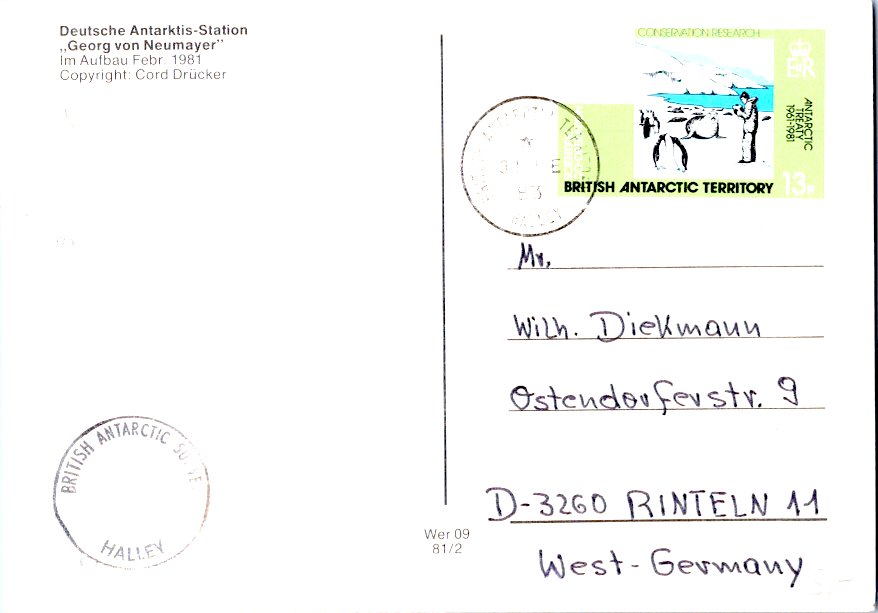 Deutsche Antarktis-Station
„Georg von Neumayer”
Im Aufbau Febr. 1981
Copyright: Cord Drücker
CONSERVATION RESEARCH
ANTARCTIC
TREATY
1961-1981
BRITISH ANTARCTIC TERRITORY
13P
HALLEY
Mr.
Wilh. Diekmann
Ostendorferstr. 9
D-3260 RINTELN 11
West-Germany
BRITISH ANTARCTIC
HALLEY
Wer 09
81/2